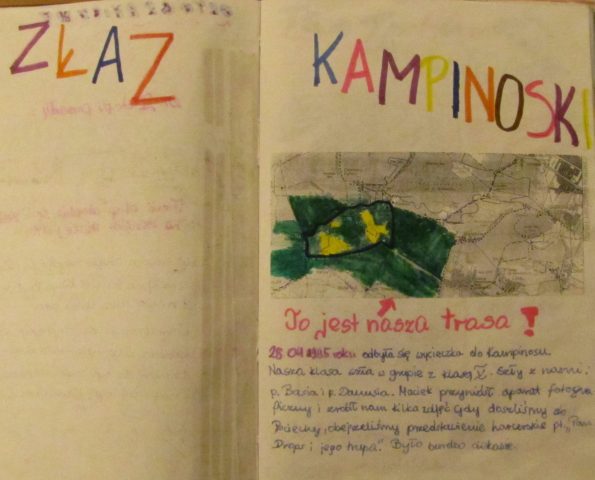 ZŁAZ
KAMPINOSKI
To jest nasza trasa !
28 04 1995 roku odbyła się wycieczka do Kampinosu.
Nasza klasa szła w grupie z klasą V. Szły z nami:
p. Basia i p. Danusia. Maciek przyniósł aparat fotogra
ficzny i zrobił nam kilka zdjęć. Gdy doszliśmy do
obejrzeliśmy przedstawienie harcerskie pt. „Pan
i jego trupa". Było bardzo ciekawe.